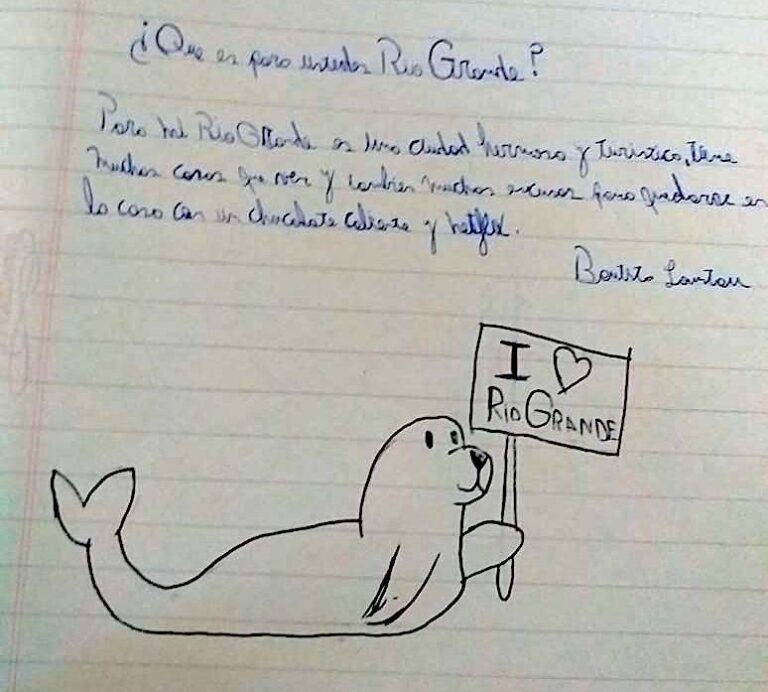 ¿Que es para ustedes Rio Grande?
Para mi Rio Grande es una ciudad hermosa y turistica, tiene
muchas cosas que ver y tambien muchas excusas para quedarse en
la casa con un chocolate caliente y netflix.
Bautista
I ♡
RIO GRANDE